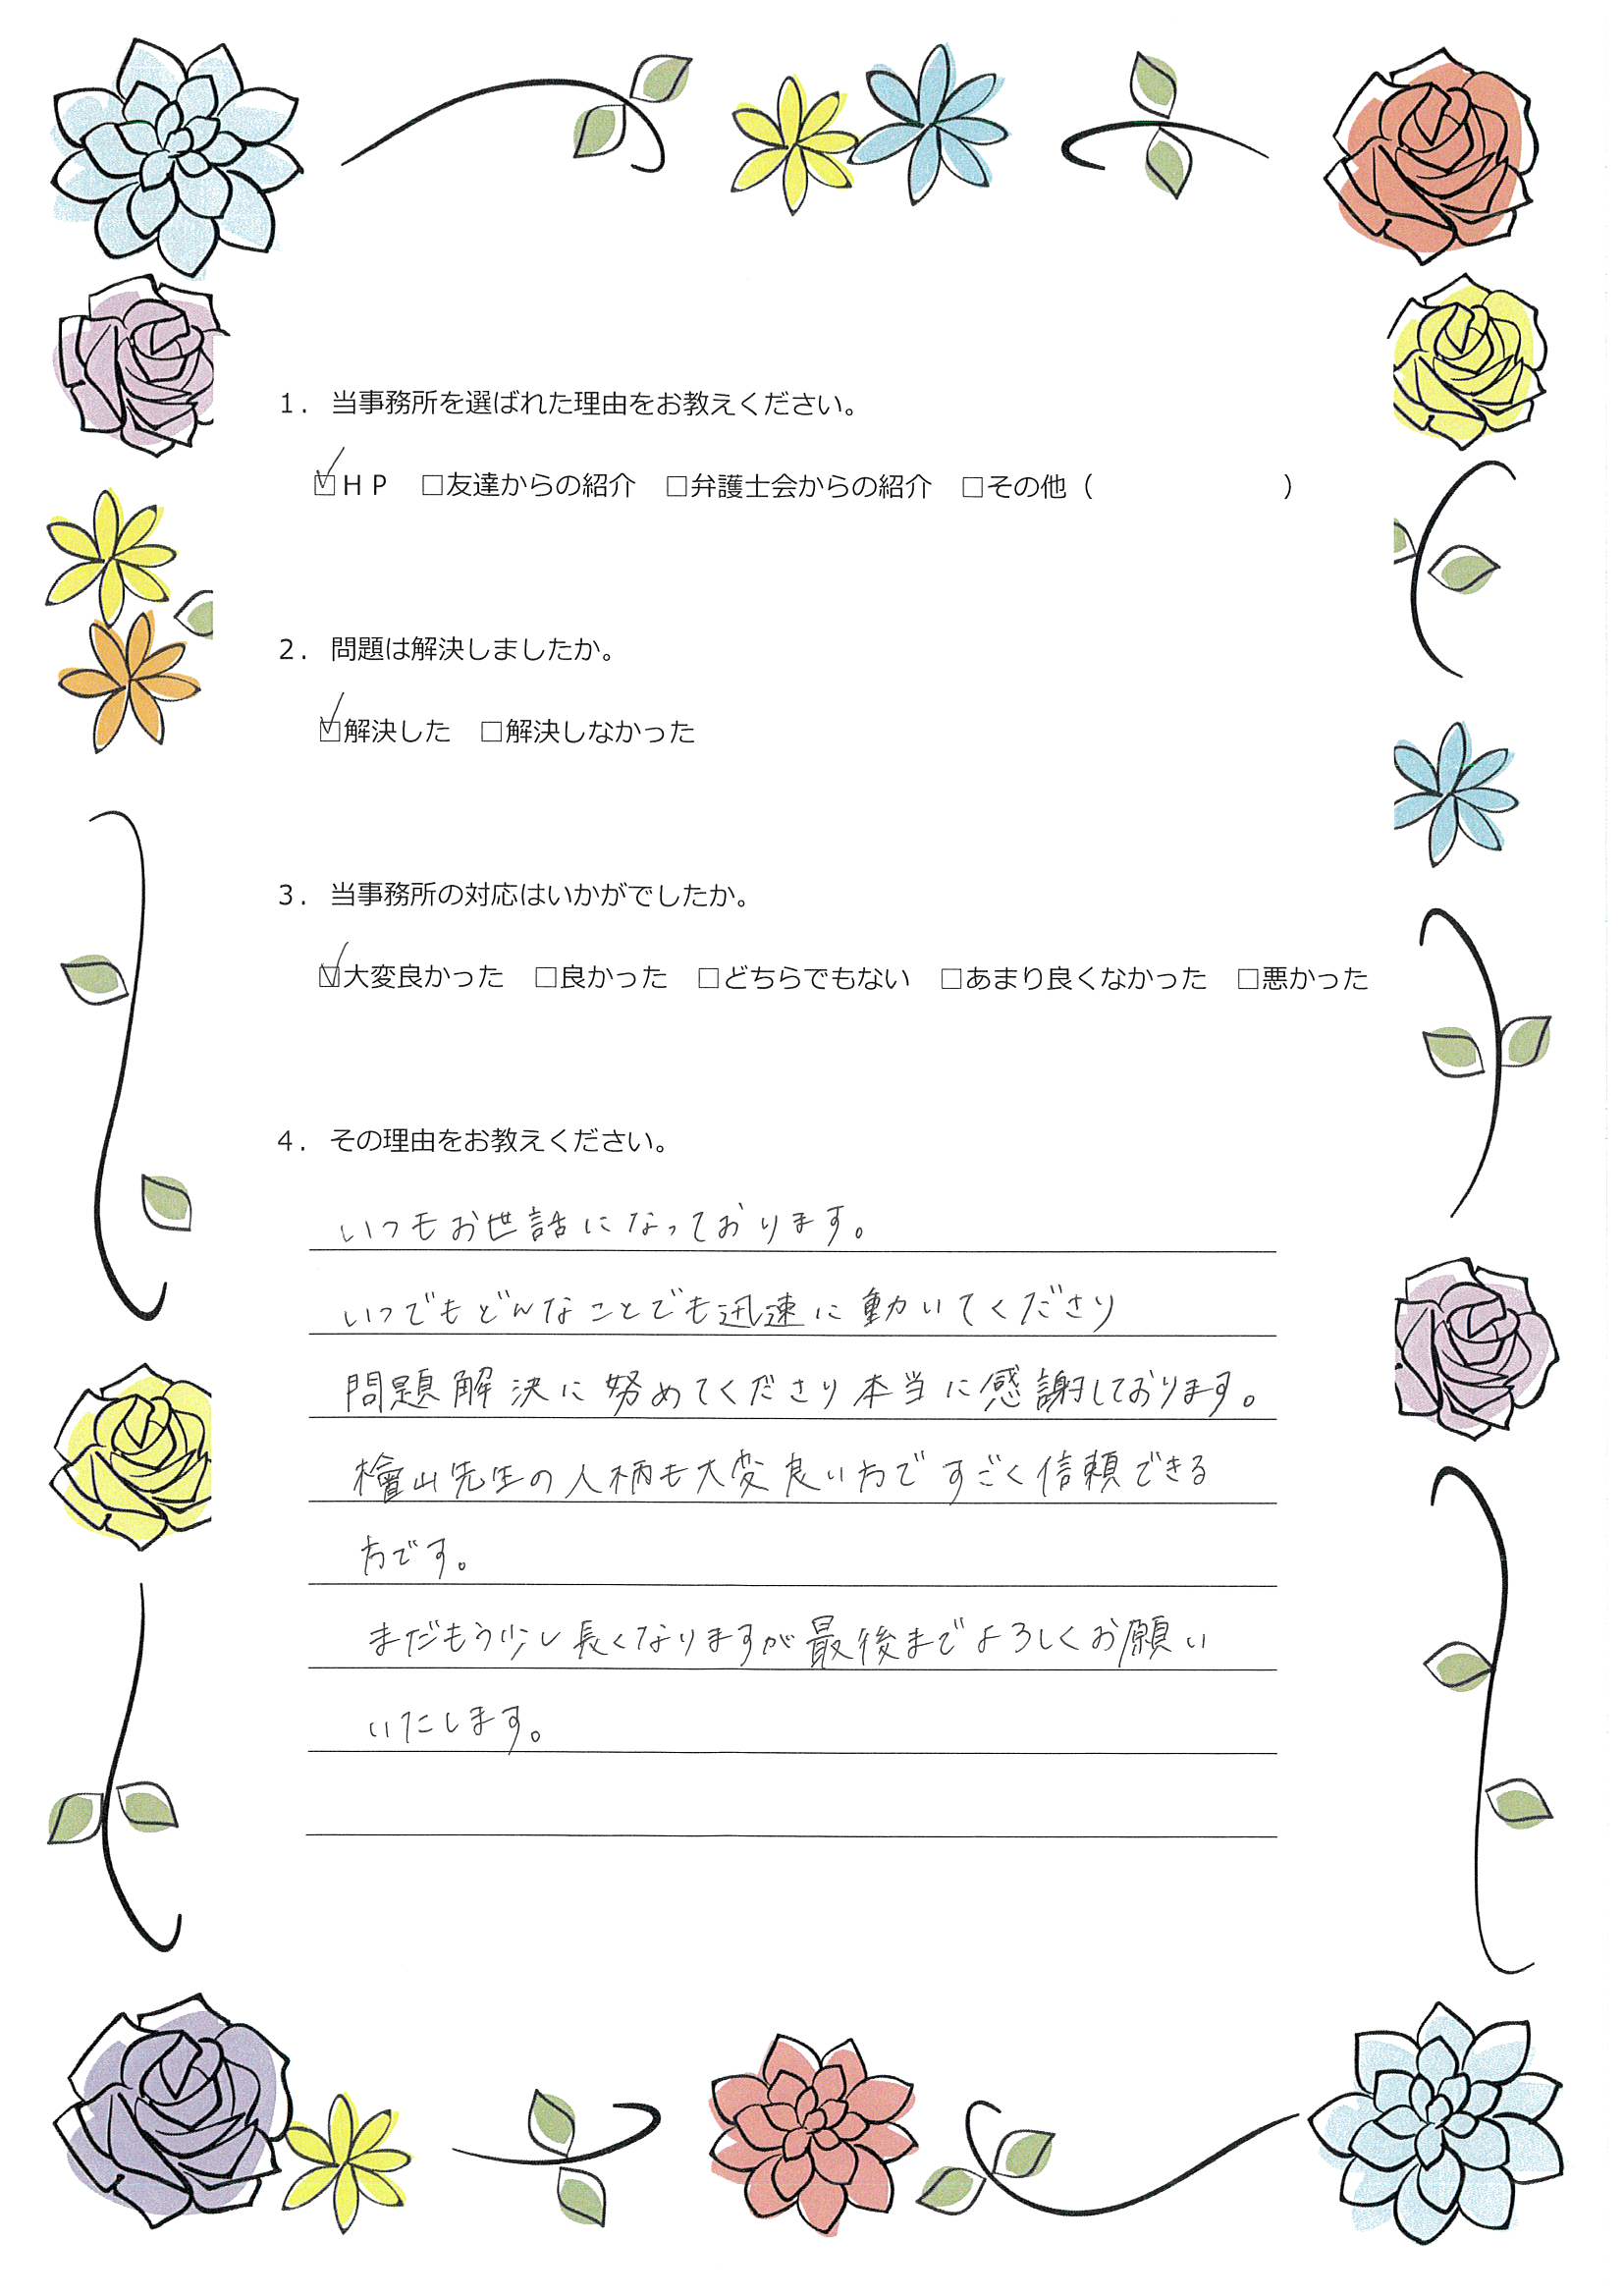 １．当事務所を選ばれた理由をお教えください。
☑ＨＰ　□友達からの紹介　□弁護士会からの紹介　□その他（　　　　　　　）
２．問題は解決しましたか。
☑解決した　□解決しなかった
３．当事務所の対応はいかがでしたか。
☑大変良かった　□良かった　□どちらでもない　□あまり良くなかった　□悪かった
４．その理由をお教えください。
いつもお世話になっております。
いつでもどんなことでも迅速に動いてくださり
問題解決に努めてくださり本当に感謝しております。
檜山先生の人柄も大変良い方ですごく信頼できる
方です。
まだもう少し長くなりますが最後までよろしくお願い
いたします。